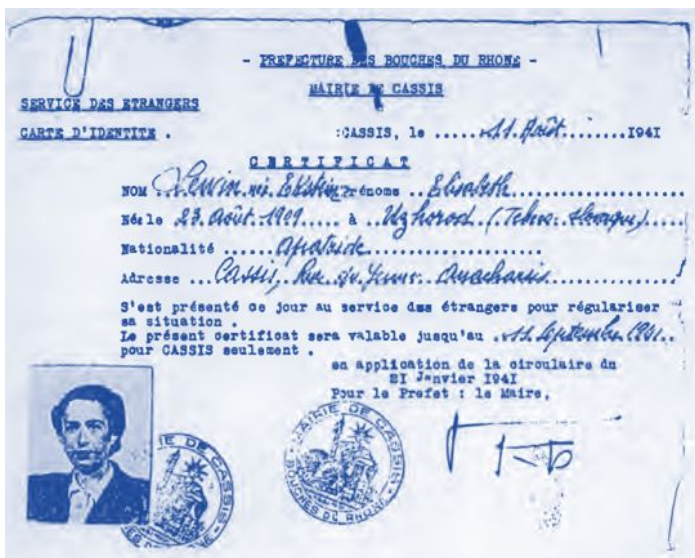 - PREFECTURE DES BOUCHES DU RHONE -
MAIRIE DE CASSIS
SERVICE DES ETRANGERS
CARTE D'IDENTITE .
:CASSIS, le ..... 11 Août ......1941
CERTIFICAT
NOM Lewin née Ekstein Prénoms .. Elisabeth
Née le 23 Août 1909 ..... à .. Uzhorod (Tchéco-slovaque)
Nationalité ...... apatride
Adresse ... Cassis, Rue du Jeune Anacharsis
S'est présenté ce jour au service des étrangers pour régulariser
sa situation .
Le présent certificat sera valable jusqu'au .. 11 Septembre 1941..
pour CASSIS seulement .
en application de la circulaire du
2I Janvier I94I
Pour le Prefet : le Maire,
MAIRIE DE CASSIS
BOUCHES DU RHONE
IE DE CASSIS
BOUCHES DU RHONE